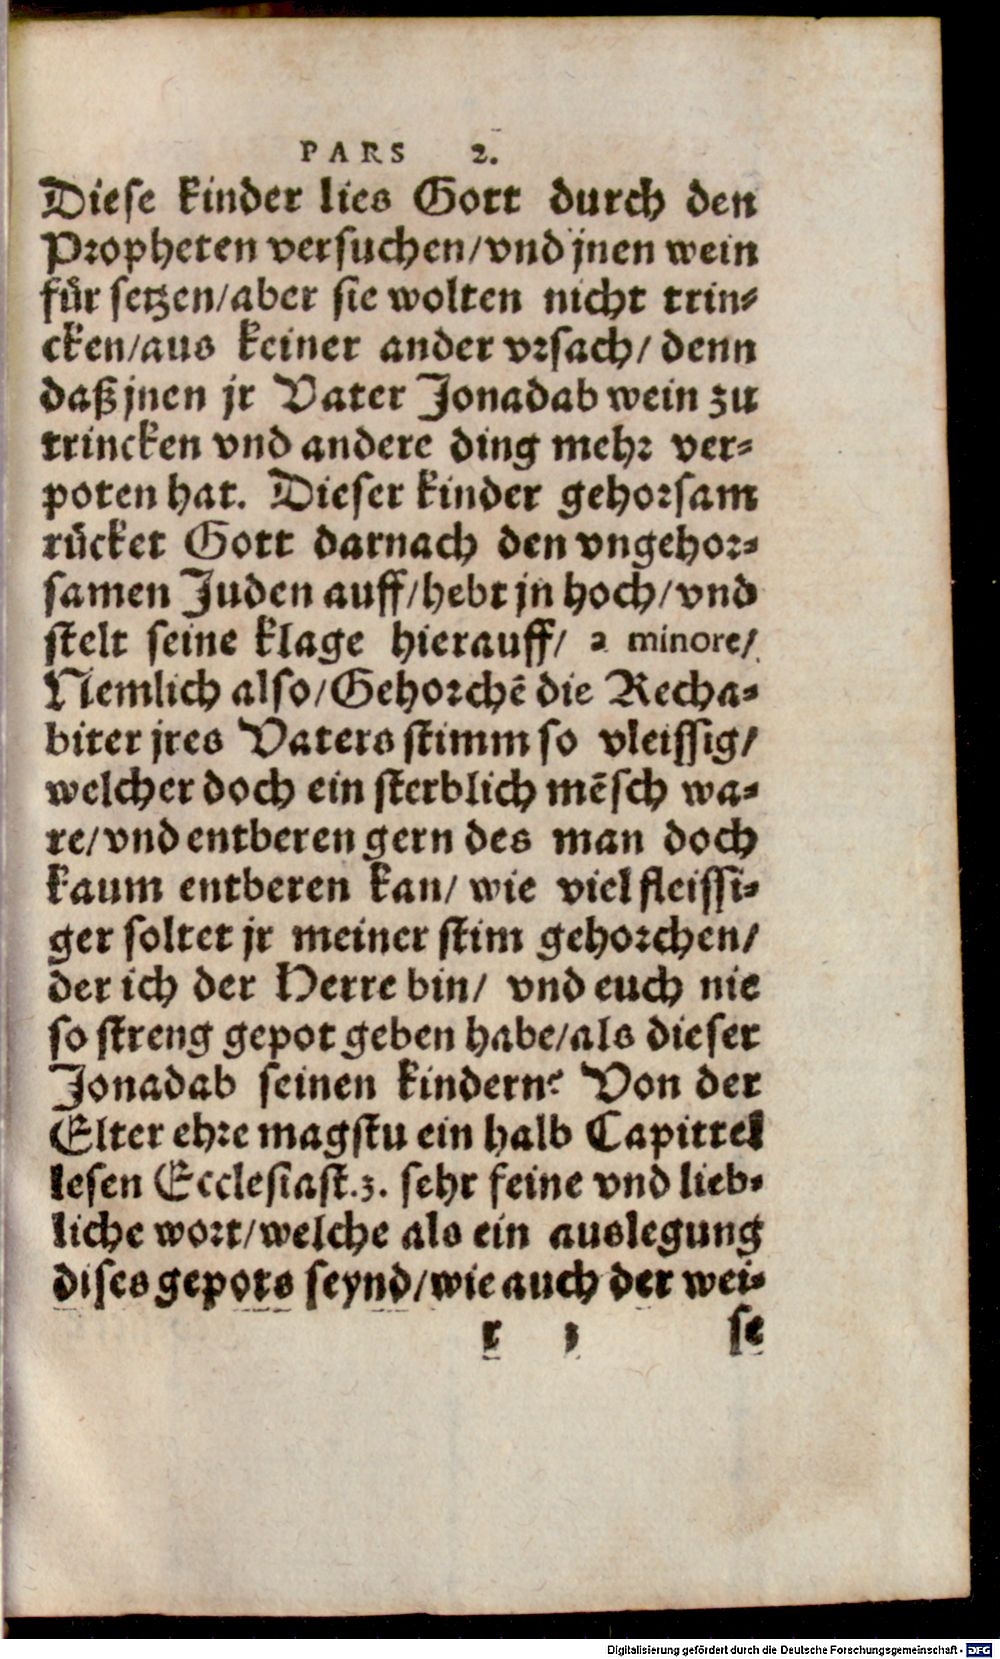 PARS 2.
Diese kinder lies Gott durch den
Propheten versuchen/vnd jnen wein
für setzen/aber sie wolten nicht trin⸗
cken/aus keiner ander vrsach/ denn
daß jnen jr Vater Jonadab wein zu
trincken vnd andere ding mehr ver⸗
poten hat. Dieser kinder gehorsam
rücket Gott darnach den vngehor⸗
samen Juden auff/hebt jn hoch/vnd
stelt seine klage hierauff/ a minore/
Nemlich also/Gehorchē die Recha⸗
biter jres Vaters stimm so vleissig/
welcher doch ein sterblich mēsch wa⸗
re/vnd entberen gern des man doch
kaum entberen kan/ wie viel fleissi⸗
ger soltet jr meiner stim gehorchen/
der ich der Herre bin/ vnd euch nie
so streng gepot geben habe/als dieser
Jonadab seinen kindern? Von der
Elter ehre magstu ein halb Capittel
lesen Ecclesiast.3. sehr feine vnd lieb⸗
liche wort/welche als ein auslegung
dises gepots seynd/wie auch der wei⸗
r 3 se
Digitalisierung gefördert durch die Deutsche Forschungsgemeinschaft - DFG